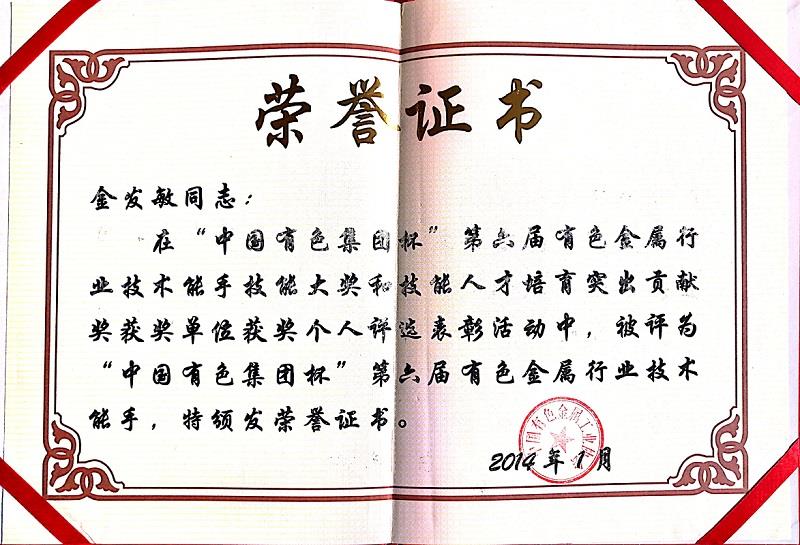 荣誉证书
金发敏同志：
在“中国有色集团杯”第六届有色金属行
业技术能手技能大奖和技能人才培育突出贡献
奖获奖单位获奖个人评选表彰活动中，被评为
“中国有色集团杯”第六届有色金属行业技术
能手，特颁发荣誉证书。
国有色金属工业协
2014年1月